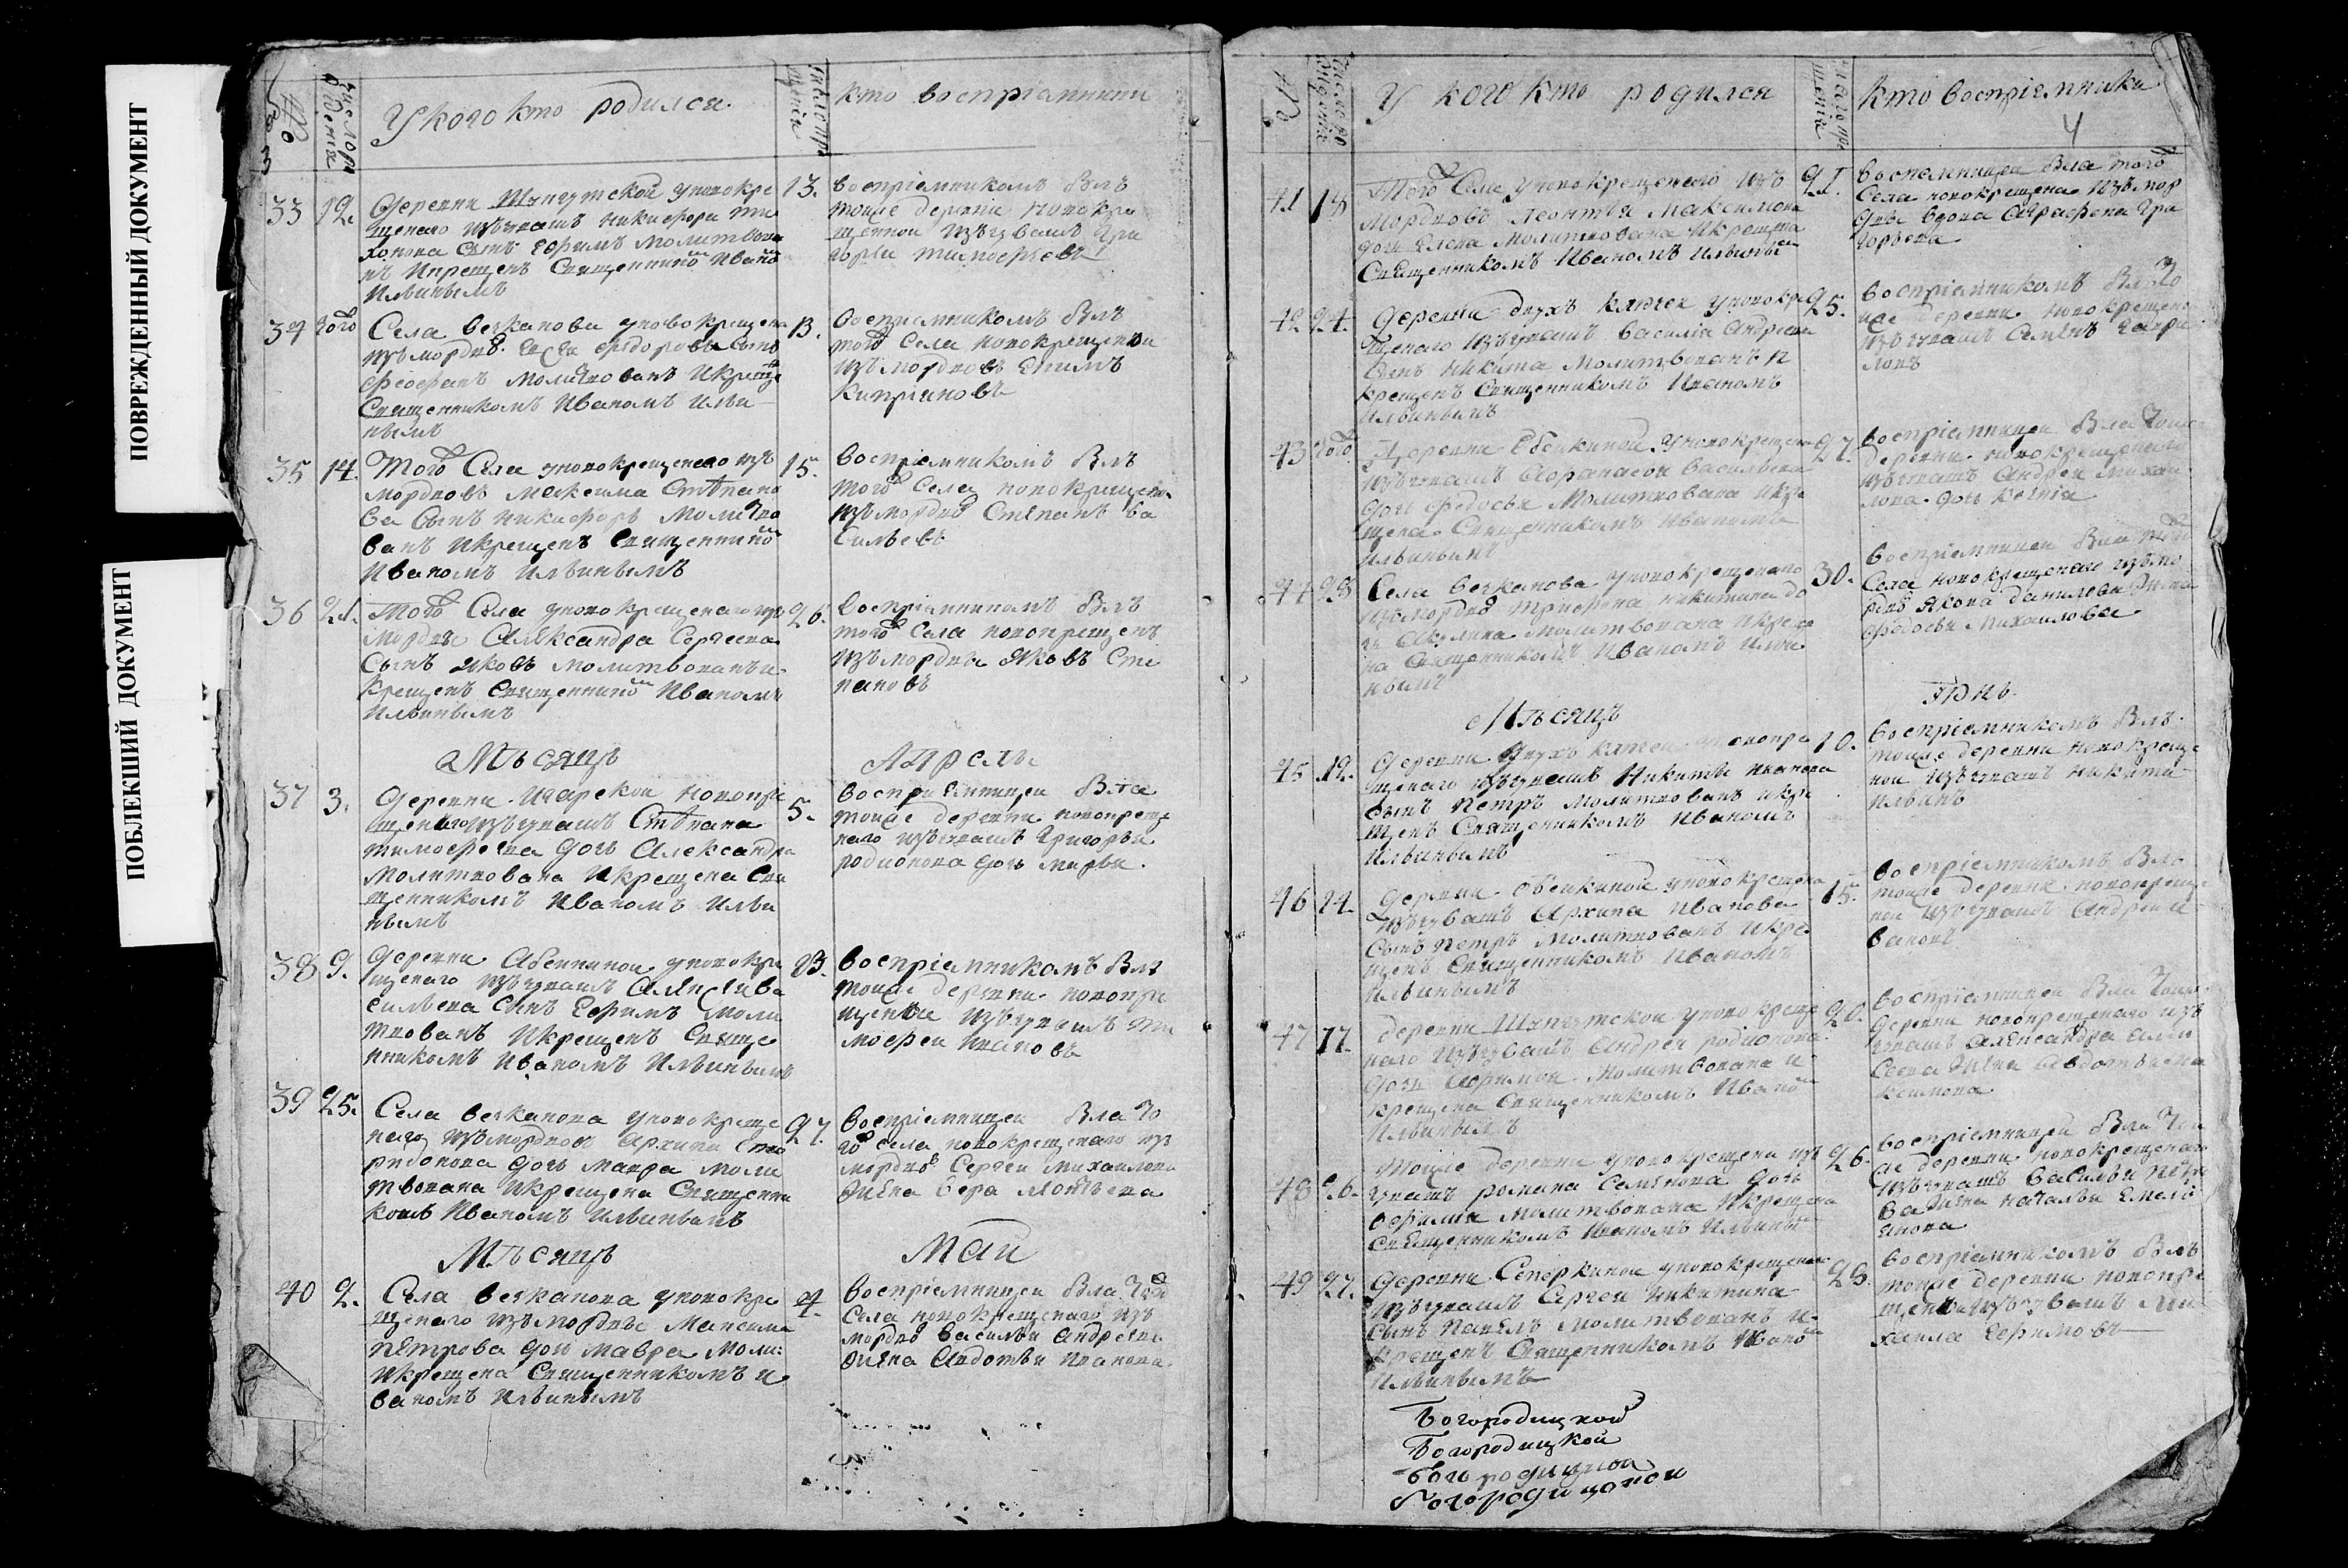 ПОВРЕЖДЕННЫЙ ДОКУМЕНТ
ПОБЛЕКШИЙ ДОКУМЕНТ
№
число рождения
У кого кто родился
число крещения
кто восприемники
33
12.
Деревни Шунгутской у новокре
щенаго изъ чувашъ никифора ти
хонова сынъ Ефимъ молитвова
нъ и крещенъ Священником Ивано
Ильинымъ
13.
восприемникомъ былъ
тоиже деревни новокре
щенной изъ чувашъ Гри
горьи тимофеевъ
34
того
Села вечканова у новокрещена
изъ мордвъ федорова сынъ
феофанъ молитвованъ и крещен
Священникомъ Иваномъ Ильи
нымъ
13.
восприемникомъ былъ
того Села новокрещенои
изъ мордвовъ Ефимъ
Киприяновъ
35
14.
Того Села у новокрещенаго изъ
мордвовъ максима Степано
ва Сынъ никифоръ молитво
ванъ и крещенъ Священником
Иваномъ Ильинымъ
15.
восприемникомъ былъ
того Села новокрещенои
изъ мордвъ Степанъ ва
сильевъ
36
21.
Того Села у новокрещенаго изъ
мордвы Александра Сергеева
Сынъ яковъ молитвованъ и
крещенъ Священником Иваномъ
Ильинымъ
26.
восприемникомъ былъ
того Села новокрещенъ
изъ мордвы яковъ Сте
пановъ
Мѣсяцъ Апрель
37
3.
Деревни новокре
щенаго изъ чувашъ Степана
тимофеева дочь Александра
молитвована и крещена Свя
щенникомъ Иваномъ Ильи
нымъ
5.
восприемницеи была
тоиже деревни новокреще
наго изъ чувашъ Григорья
родионова дочь марья
38
9.
Деревни Абенкинои у новокре
щенаго изъ чувашъ Алексея ва
сильева сынъ Ефимъ моли
твованъ и крещенъ Свяще
нникомъ Иваномъ Ильинымъ
13.
восприемникомъ былъ
тоиже деревни новокре
щеныи изъ чувашъ ти
мофеи Ивановъ
39
25.
Села вечканова у новокреще
наго изъ мордвовъ Архипа Спи
ридонова дочь мавра моли
твована и крещена Священни
комъ Иваномъ Ильинымъ
27.
восприемницеи была то
го Села новокрещенаго изъ
мордвъ Сергея михаилова
жена вера матвеева
Мѣсяцъ Маи
40
2.
Села вечканова у новокре
щенаго изъ мордвы Максима
петрова дочь мавра моли:
и крещена Священникомъ и
ваномъ Ильинымъ
4.
восприемницеи была той
Села новокрещенаго изъ
мордвъ василья Андреева
жена Авдотья Иванова
№
число рождения
У кого кто родился
число крещения
кто восприемники
4
41
19
Того Села у новокрещенаго изъ
мордвовъ леонтья Максимова
дочь Елена молитвована и крещена
Священникомъ Иваномъ Ильины
21.
восприемницеи была того
Села новокрещена изъ мор
двы вдова Аграфена Гри
горьева
42
24.
Деревни двухъ ключеи у новокре
щенаго изъ чувашъ василья Андреева
Сынъ никита молитвованъ и
крещенъ Священникомъ Иваномъ
Ильинымъ
25.
восприемникомъ былъ то
иже деревни новокрещено
изъ чувашъ Семенъ Гаври
ловъ
43
того.
Деревни у новокрещена
изъ чувашъ Афанасея васильева
дочь федосья молитвована и кре
щена Священникомъ Иваномъ
Ильинымъ
27.
восприемницеи была тоиже
деревни новокрещенаго
изъ чувашъ Андрея михаи
лова дочь
44
28
Села вечканова у новокрещенаго
изъ мордвъ трифона никитина до
чь Акулина молитвована и креще
на Священникомъ Иваномъ Ильи
нымъ
30.
восприемницеи была тои
Села новокрещенаго изъ мо
рдвъ якова данилова жена
федосья Михаилова
Мѣсяцъ Июнь
45
12.
Деревни двухъ ключеи у новокре
щенаго изъ чувашъ Никиты иванова
сынъ петръ молитвованъ и кре
щенъ Священникомъ Иваномъ
Ильинымъ
10.
восприемникомъ былъ
тоиже деревни новокреще
нои изъ чувашъ никита
Ильинъ
46
14.
Деревни у новокрещена
изъ чувашъ Архипа Иванова
Сынъ петръ молитвованъ и кре
щенъ Священникомъ Иваномъ
Ильинымъ
15.
восприемникомъ былъ
тоиже деревни новокреще
нои изъ чувашъ Андреи и
вановъ
47
17.
деревни Шунгутскои у новокреще
наго изъ чувашъ Андрея родионова
дочь молитвована и
крещена Священникомъ Ивано
Ильинымъ
20.
восприемницеи была тоиже
деревни новокрещенаго изъ
чувашъ Александра Алек
сеева жена Авдотья ма
ксимова
48
26.
Тоиже деревни у новокрещена изъ
чувашъ романа Семенова дочь
молитвована и крещена
Священникомъ Иваномъ Ильины
26.
восприемницеи была тои
же деревни новокрещенаго
изъ чувашъ василья петро
ва жена наталья Емель
янова
49
27.
Деревни Сеперкинои у новокрещена
изъ чувашъ Сергея никитина
сынъ павелъ молитвованъ и
крещенъ Священникомъ Ивано
Ильинымъ
28.
восприемникомъ былъ
тоиже деревни новокре
щеныи изъ чувашъ Ми
хаила Ефимовъ
Богородицкой
Богородицкой
Богородицкой
Богородицкой